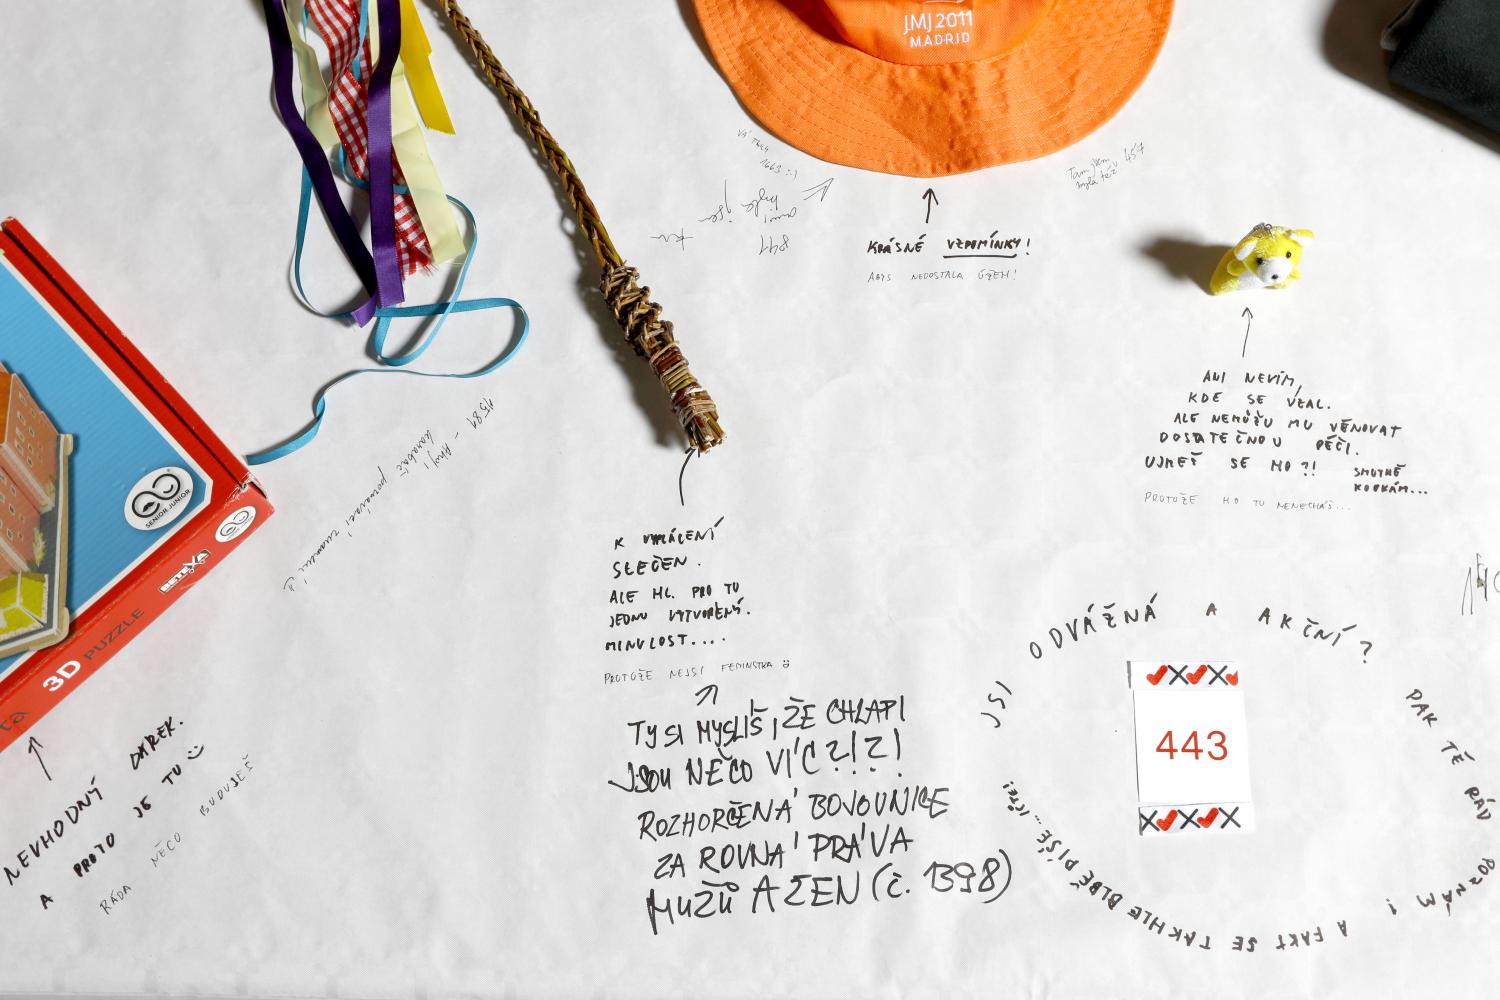 JMJ 2011
MADRID
1663 :-)
841
ani
byla jsem
Tam jsem
byla též v 457
KRÁSNÉ VZPOMÍNKY!
ABYS NEDOSTALA ÚŽEH!
ANI NEVÍM,
KDE SE VZAL.
ALE NEMŮŽU MU VĚNOVAT
DOSTATEČNOU PÉČI.
UJMEŠ SE HO?! SMUTNĚ
KOUKÁM...
PROTOŽE HO TU NENECHÁŠ...
1581 - Ahoj,
karabáč poznávací znamení
SENIOR JUNIOR
3D PUZZLE
K VYPLÁCENÍ
SLEČEN.
ALE HL. PRO TU
JEDNU VYTVOŘENÝ.
MINULOST....
PROTOŽE NEJSI FEMINISTKA
TY SI MYSLÍŠ, ŽE CHLAPI
JSOU NĚCO VÍC?!?!
ROZHOŘČENÁ BOJOVNICE
ZA ROVNÁ PRÁVA
MUŽŮ A ŽEN (č. 1398)
NEVHODNÝ DÁREK.
A PROTO JE TU
RÁDA NĚCO BUDUJEŠ
JSI ODVÁŽNÁ A AKČNÍ?
PAK TĚ RÁD POZNÁM!
A FAKT SE TAKHLE BLBĚ PÍŠE...
443